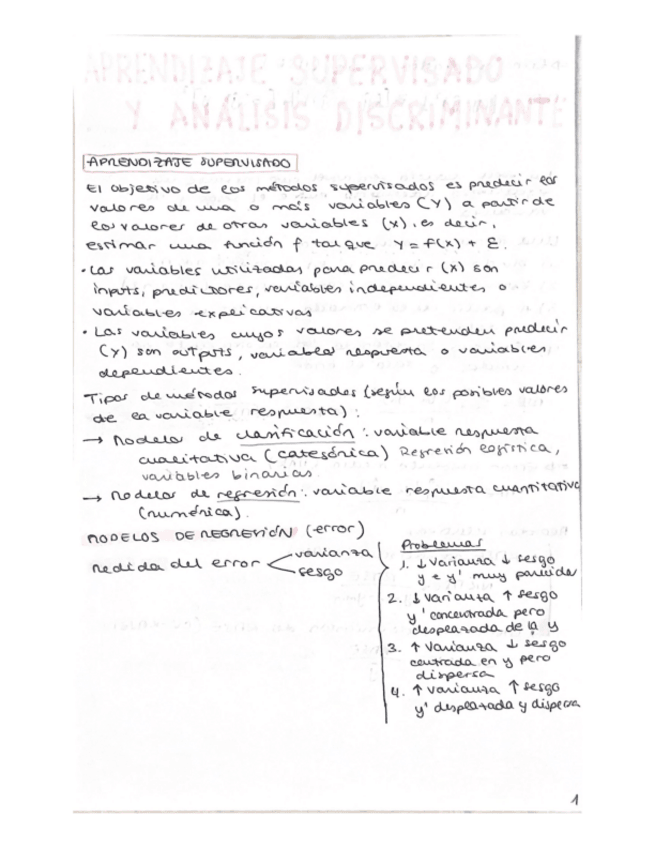 APRENDIZAJE SUPERVISADO
Y ANÁLISIS DISCRIMINANTE
APRENDIZAJE SUPERVISADO
El objetivo de los métodos supervisados es predecir los
valores de una o más variables (Y) a partir de
los valores de otras variables (X), es decir,
estimar una función f tal que Y = f(x) + ε.
• Las variables utilizadas para predecir (X) son
inputs, predictores, variables independientes o
variables explicativas
• Las variables cuyos valores se pretenden predecir
(Y) son outputs, variables respuesta o variables
dependientes.
Tipos de métodos supervisados (según los posibles valores
de la variable respuesta):
→ Modelos de clasificación: variable respuesta
cualitativa (categórica) Regresión logística,
variables binarias.
→ Modelos de regresión: variable respuesta cuantitativa
(numérica).
MODELOS DE REGRESIÓN (error)
Medida del error
varianza
sesgo
Problemas
1. ↓ Varianza ↓ sesgo
y e y' muy parecidas
2. ↓ Varianza ↑ sesgo
y' concentrada pero
desplazada de la y
3. ↑ Varianza ↓ sesgo
centrada en y pero
dispersa
4. ↑ Varianza ↑ sesgo
y' desplazada y dispersa
1